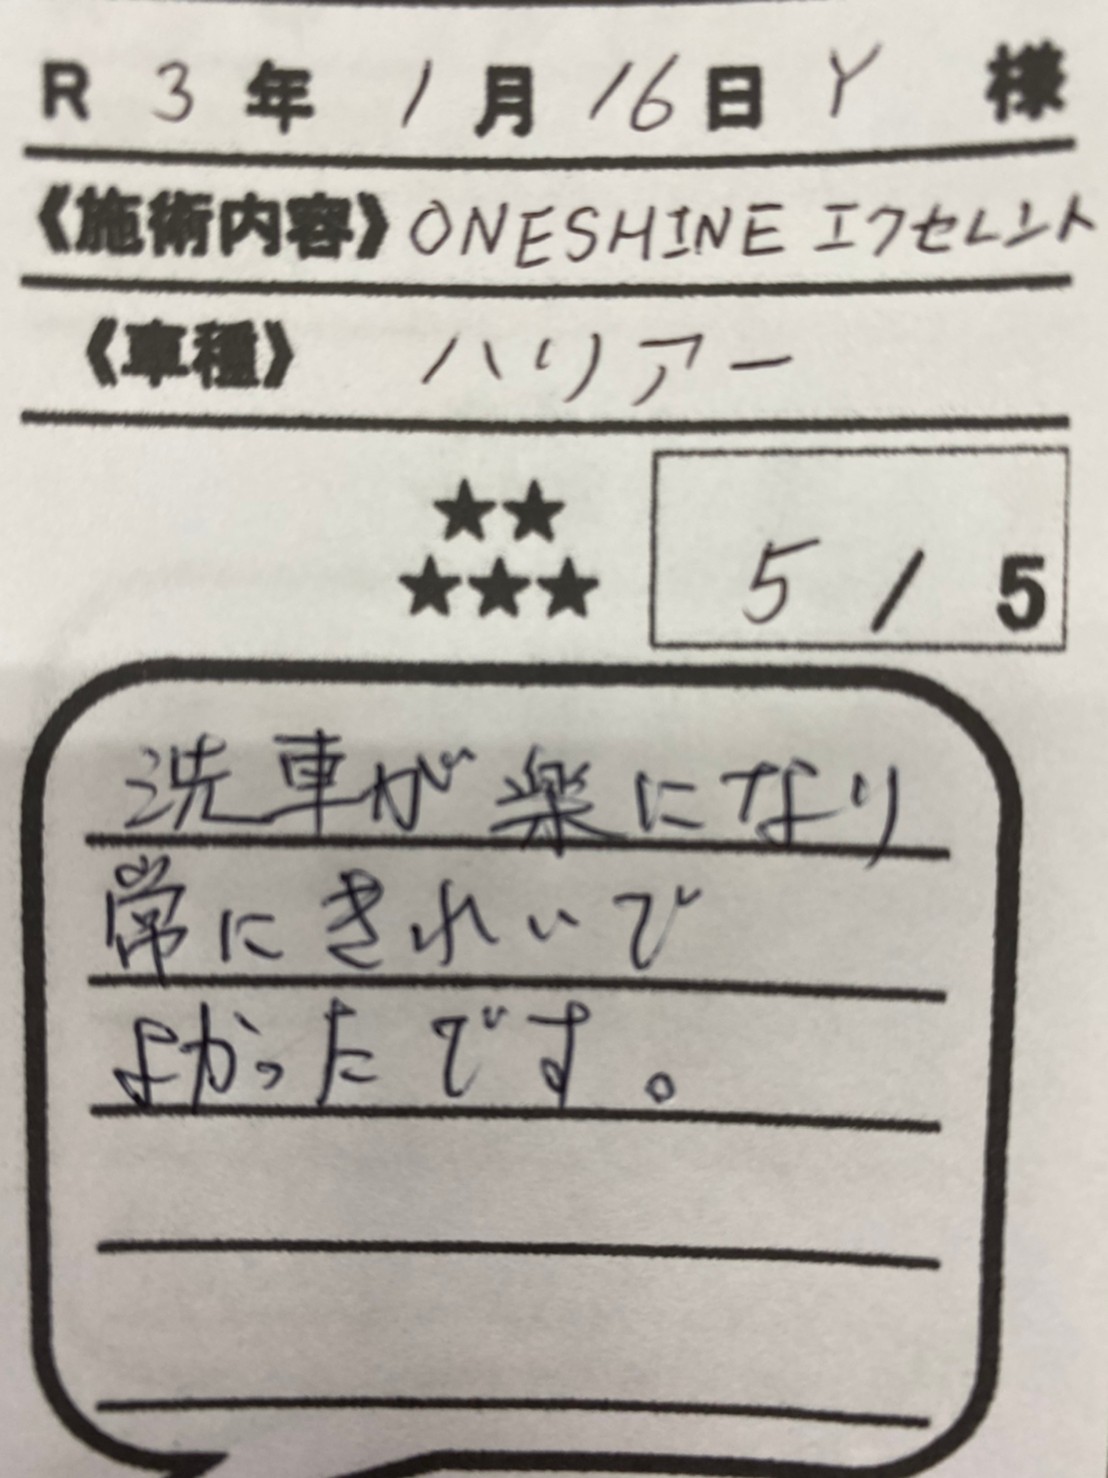 R 3 年 1 月 16 日 Y 様
《施術内容》ONESHINE エクセレント
《車種》 ハリアー
★★
★★★ 5 / 5
洗車が楽になり
常にきれいで
よかったです。